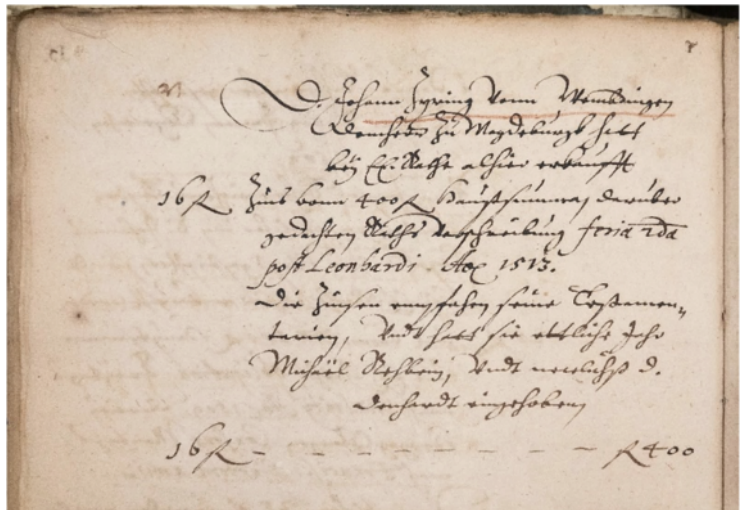 D. Johann Zyring vonn Wembdingen
Domherr zu Magdeburgk hatt
bey E. E. Rathe alhier erkaufft
16 fl Zins vonn 400 fl Hauptsumma, darüber
gedachten Raths verschreibung feria 2da
post Leonhardi Ao 1513.
Die Zinsen empfahen seine Testamen-
tarien, Undt hatt sie etliche Jahr
Michael Rehbein, Undt newlichst D.
Denhardt eingehoben
16 fl - - - - - - - fl 400